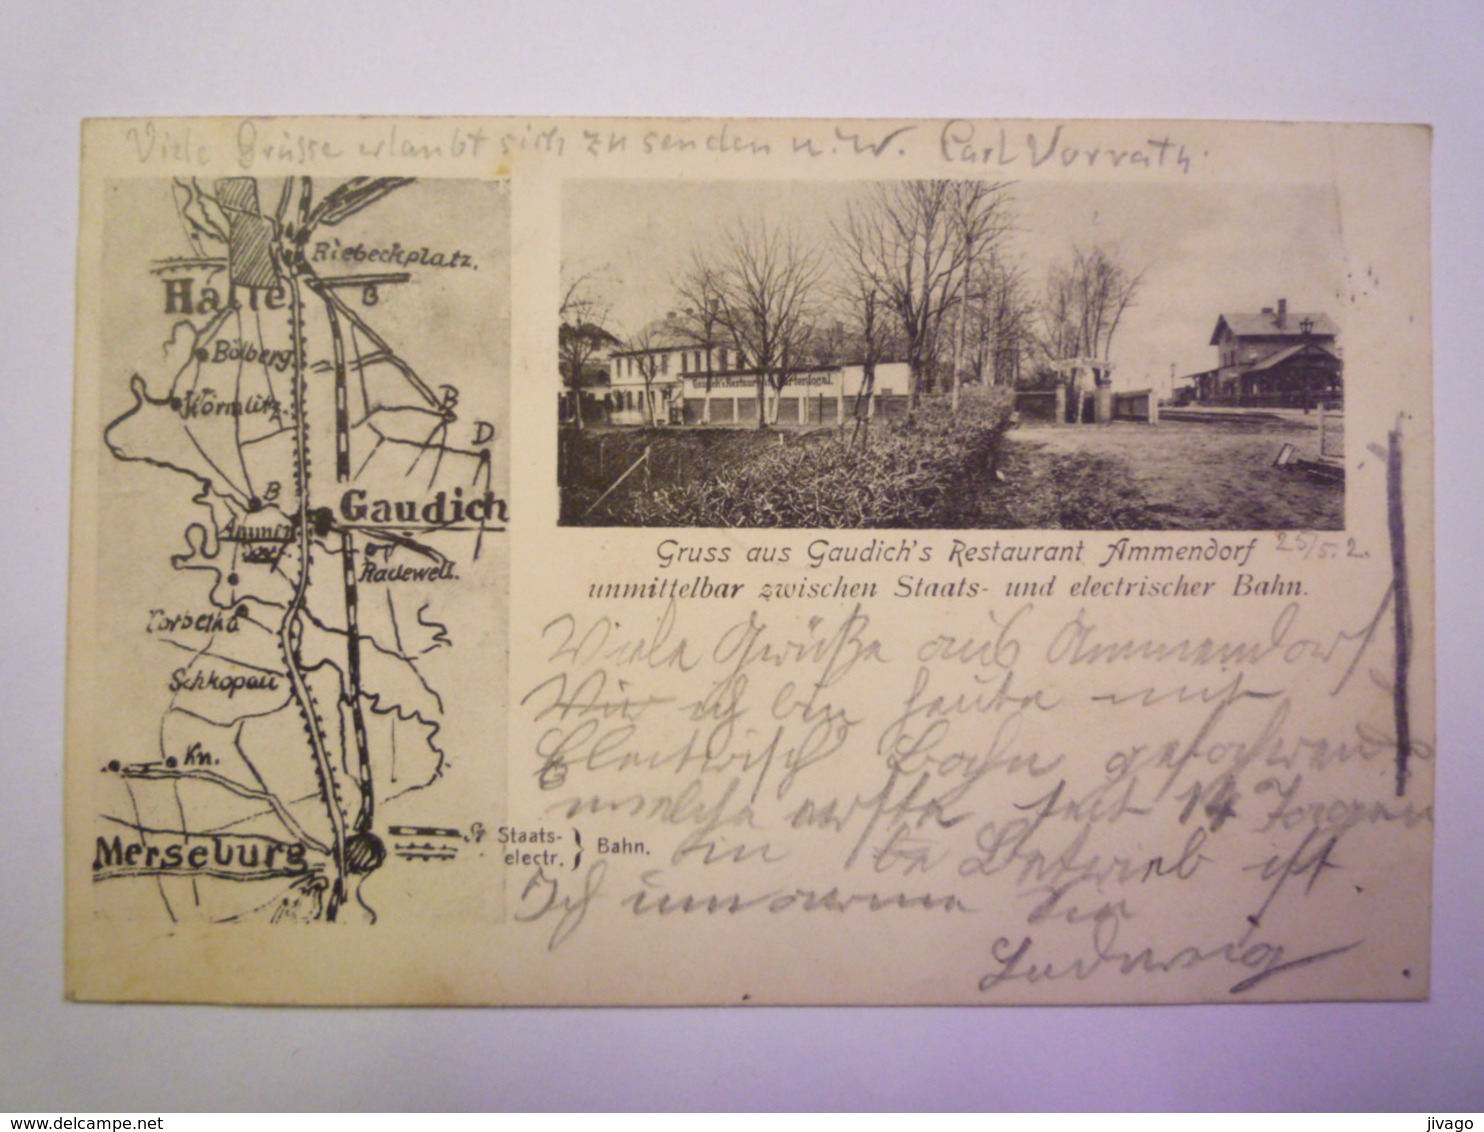 Viele Grüsse erlaubt sich zu senden u. W. Carl Vorrath.
Riebeckplatz.
Halle
B
Bölberg
Wörmlitz.
B
D
B
Gaudich
Ammen
dorf.
Radewell.
Corbetha
Schkopau
Kn.
Merseburg
Staats-
electr. } Bahn.
Gaudich's Restaurant Gartenlocal.
Gruss aus Gaudich's Restaurant Ammendorf 25/5. 2.
unmittelbar zwischen Staats- und electrischer Bahn.
Viele Grüße aus Ammendorf
Wir ich bin heute mit
Electrisch Bahn
welche erst seit 14 Tagen
in Betrieb ist
Ich umarme Sie
Ludwig
jivago